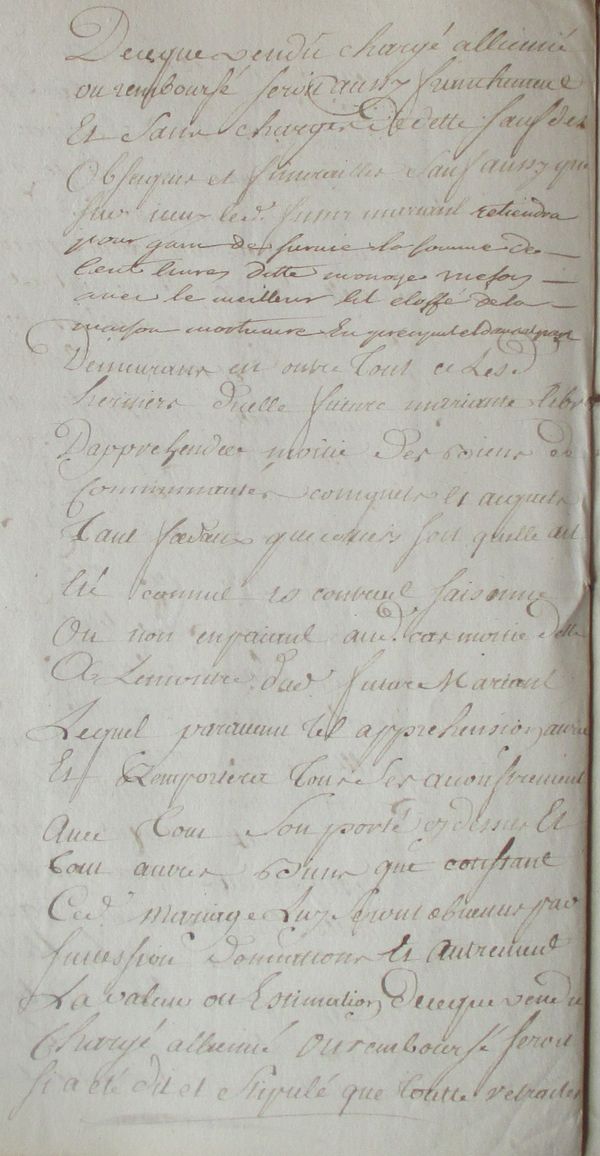 Deceque vendu chargé allienné
ou remboursé seroit aussy franchement
Et Sans charges de dette sauf des
Obseques et funerailles Sauf aussy que
sur iceux led. futur mariant retiendra
pour gain de survie la somme de
Cent livres ditte monoye
avec le meilleur lit etoffé de la
maison mortuaire En
Demeurans en outre Tout ce Les d.
heritiers d'icelle future mariante libre
D'apprehender moitié des biens de
Communautés conquets et acquets
Tant que soit quelle ait
été comme es contract
Ou non en paiant aud. cas moitié dette
A Lencontre dud. futur Mariant
Lequel tel apprehension aura
Et Remportera Tous Ses
Avec Tout Son porté cy dessus Et
tout autres Biens que constant
Ced. Mariage Luy Seront obvenus par
succession donnations Et Autrement
La valeur ou Estimation Deceque vendu
Chargé allienné Ou remboursé seroit
Si a été dit et Stipulé que toutte retraite